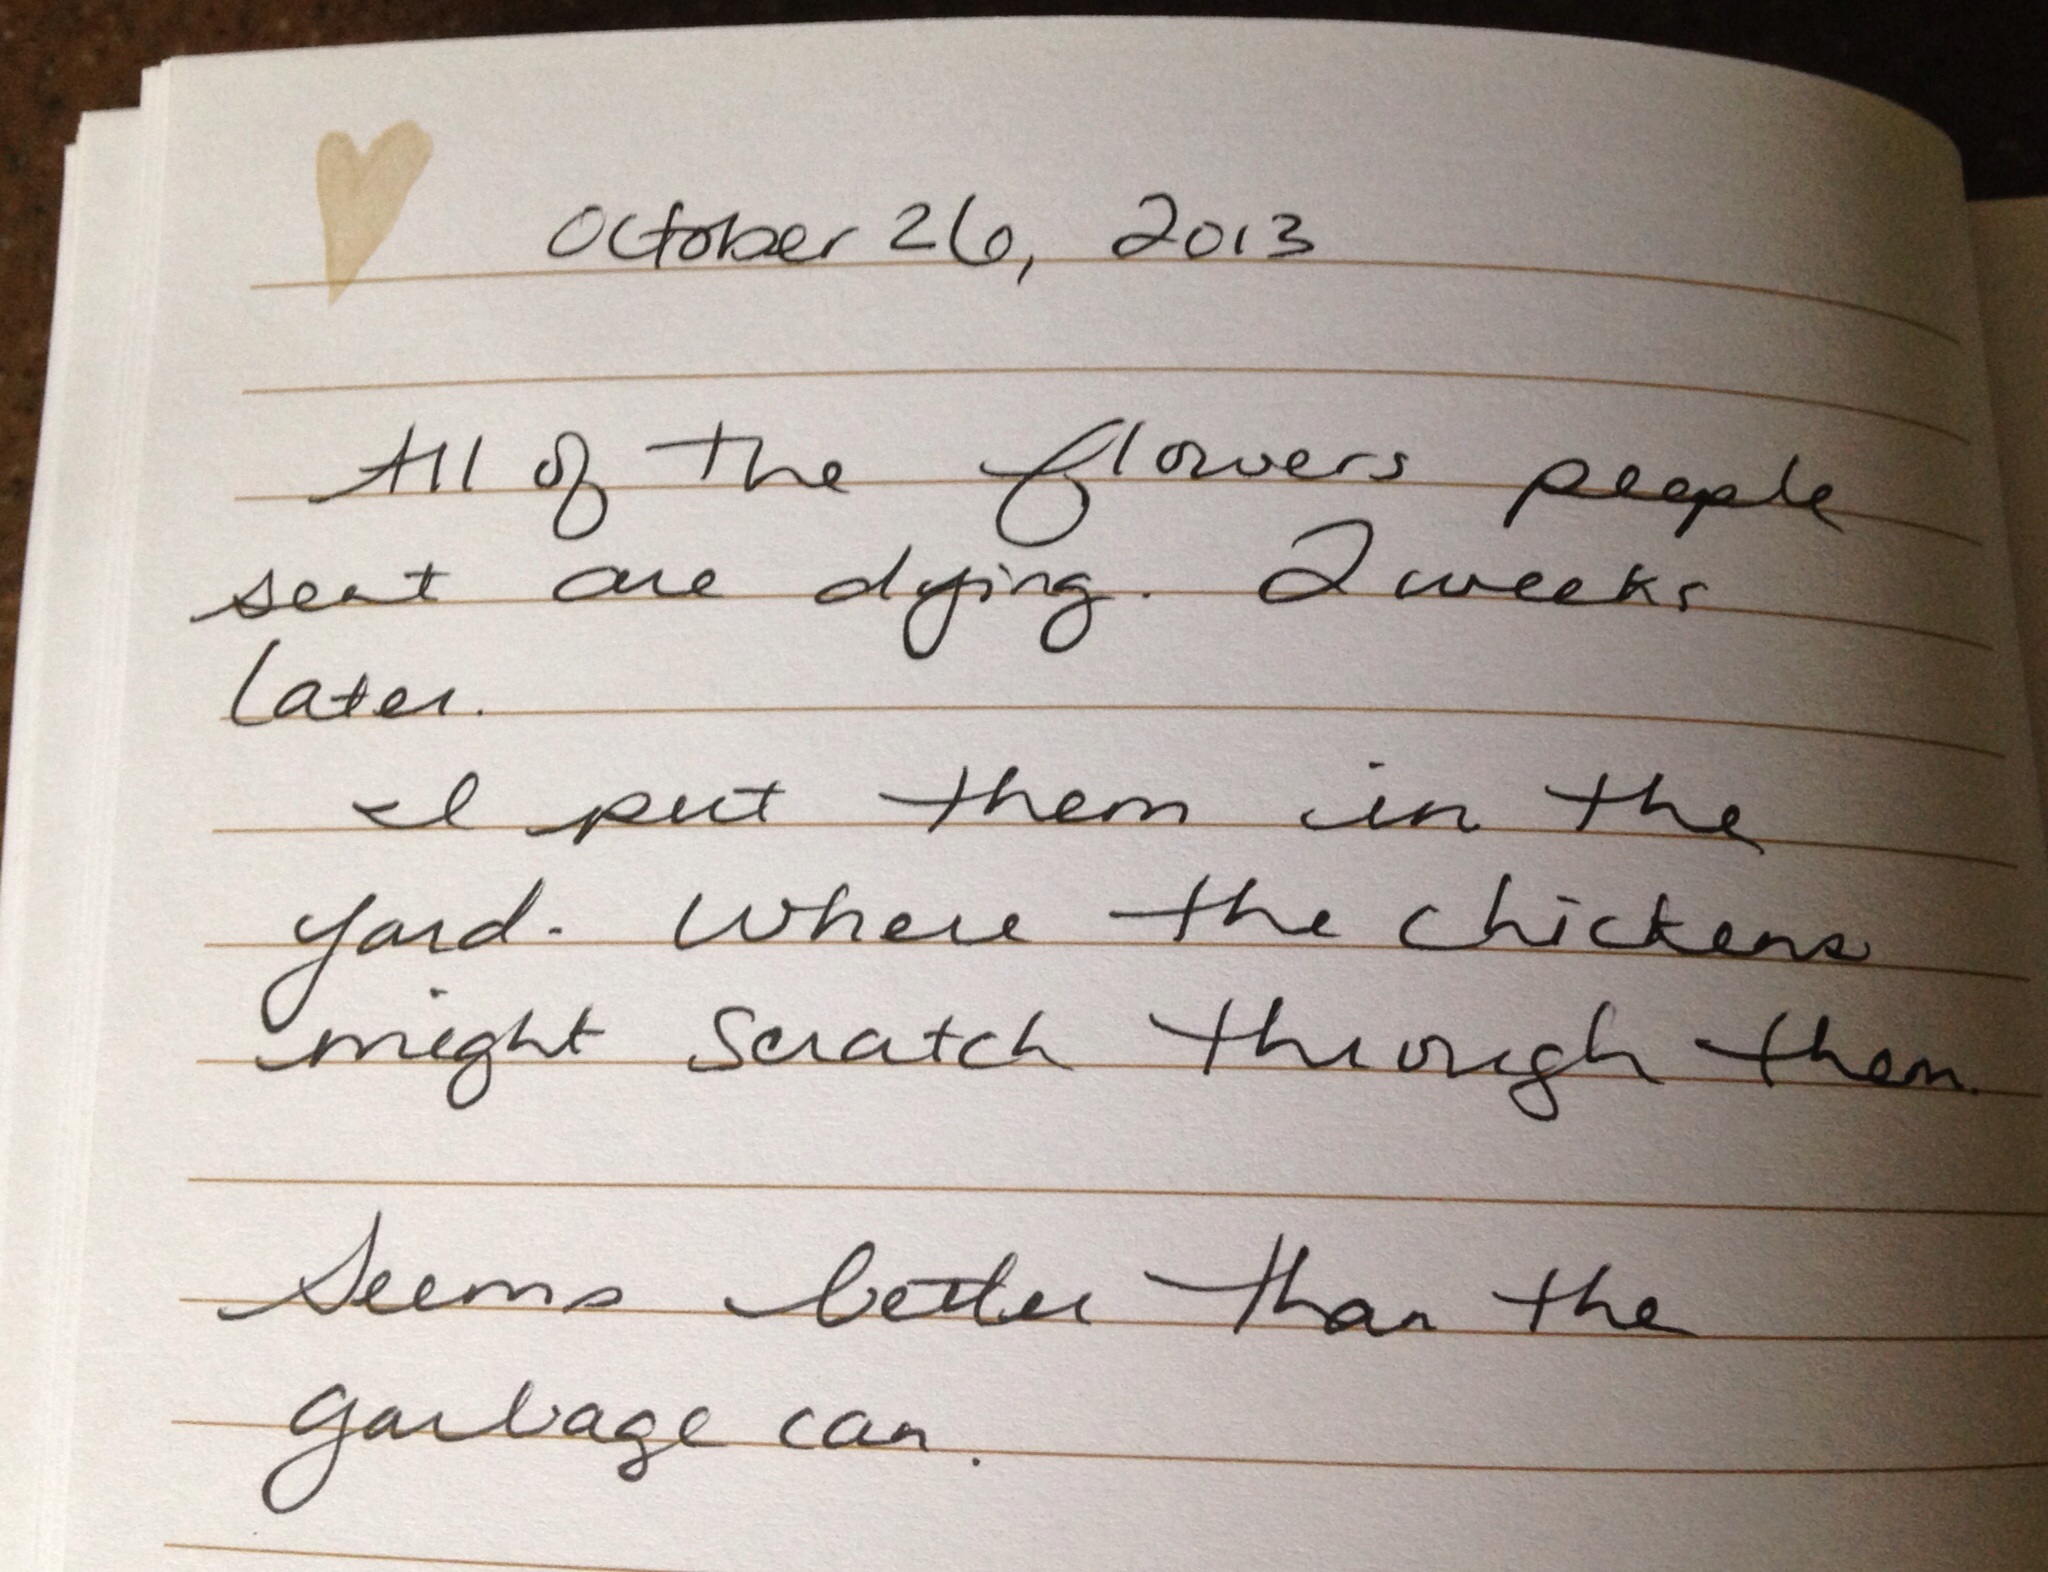 October 26, 2013
All of the flowers people
sent are dying. 2 weeks
later.
I put them in the
yard. Where the chickens
might scratch through them.
Seems better than the
garbage can.